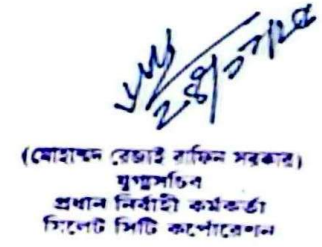 ২৪/১১/২৫
(মোহাম্মদ রেজাই রাফিন সরকার)
যুগ্মসচিব
প্রধান নির্বাহী কর্মকর্তা
সিলেট সিটি কর্পোরেশন